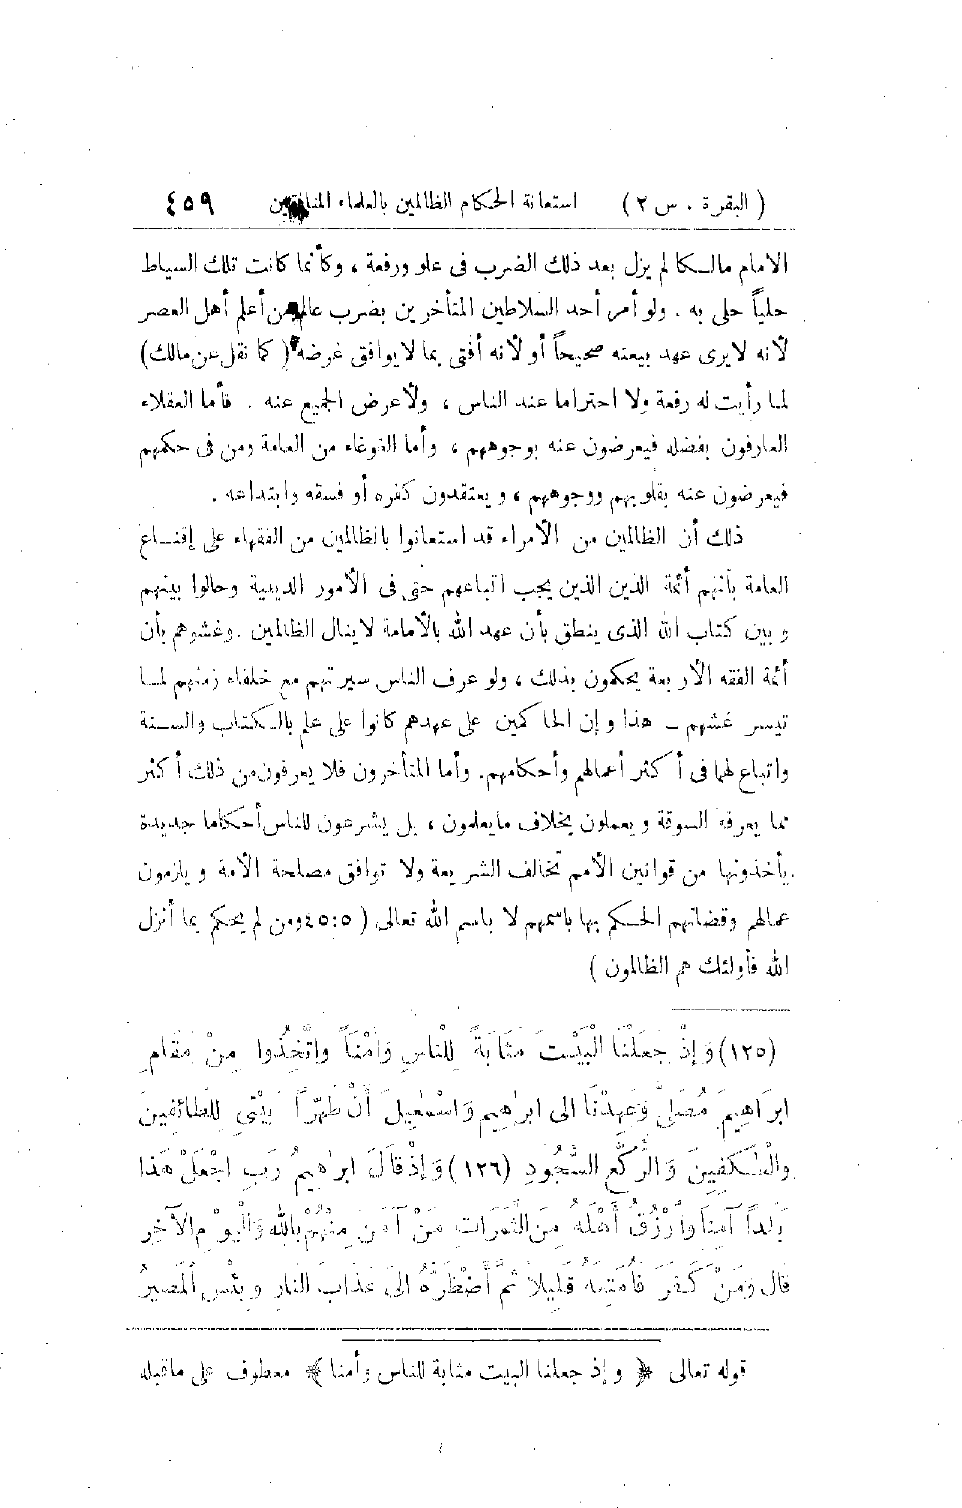 ( البقرة . س ٢ ) استعانة الحكام الظالمين بالعلماء المنافقين ٤٥٩
الامام مالكا لم يزل بعد ذلك الضرب فى علو ورفعة ، وكأنما كانت تلك السياط
حلياً حلى به . ولو أمر أحد السلاطين المتأخرين بضرب عالم من أعلم أهل العصر
لأنه لا يرى عهد بيعته صحيحاً أو لأنه أفتى بما لا يوافق غرضه ( كما نقل عن مالك )
لما رأيت له رفعة ولا احتراما عند الناس ، ولأعرض الجميع عنه . فأما العقلاء
العارفون بفضله فيعرضون عنه بوجوههم ، وأما الغوغاء من العامة ومن فى حكمهم
فيعرضون عنه بقلوبهم ووجوههم ، ويعتقدون كفره أو فسقه وابتداعه .
ذلك أن الظالمين من الأمراء قد استعانوا بالظالمين من الفقهاء على إقناع
العامة بأنهم أئمة الدين الذين يجب اتباعهم حتى فى الأمور الدينية وحالوا بينهم
وبين كتاب الله الذى ينطق بأن عهد الله بالأمامة لا ينال الظالمين . وغشوهم بأن
أئمة الفقه الأربعة يحكمون بذلك ، ولو عرف الناس سيرتهم مع خلفاء زمنهم لما
تيسر غشهم ـ هذا وإن الحاكمين على عهدهم كانوا على علم بالكتاب والسنة
واتباع لهما فى أكثر أعمالهم وأحكامهم . وأما المتأخرون فلا يعرفون من ذلك أكثر
مما يعرفه السوقة ويعملون بخلاف ما يعلمون ، بل يشرعون للناس أحكاما جديدة
يأخذونها من قوانين الأمم تخالف الشريعة ولا توافق مصلحة الأمة ويلزمون
عمالهم وقضاتهم الحكم بها باسمهم لا باسم الله تعالى ( ٥:٤٥ ومن لم يحكم بما أنزل
الله فأولئك هم الظالمون )
(١٢٥) وَإِذْ جَعَلْنَا الْبَيْتَ مَثَابَةً لِلنَّاسِ وَأَمْنًا وَاتَّخِذُوا مِنْ مَقَامِ
ابرَاهِيمَ مُصَلًّى وَعَهِدْنَا الى ابرَاهِيم وَاسْمٰعِيلَ أَنْ طَهِّرَا بَيْتِي لِلطَّائفِينَ
والْعٰكِفِينَ وَالرُّكَّعِ السُّجُودِ (١٢٦) وَإِذْ قَالَ ابرَاهِيمُ رَبِّ اجْعَلْ هَذَا
بَلَداً آمِنًا وَارْزُقْ أَهْلَهُ مِنَ الثَّمَرَاتِ مَنْ آمَنَ مِنْهُمْ بِاللهِ وَالْيَوْمِ الآخِرِ
قَالَ وَمَنْ كَفَرَ فَأُمَتِّعُهُ قَلِيلاً ثُمَّ أَضْطَرُّهُ الىَ عَذَابِ النَّارِ وَبِئْسَ الْمَصِيرُ
قوله تعالى ﴿ وإذ جعلنا البيت مثابة للناس وأمنا ﴾ معطوف على ماقبله